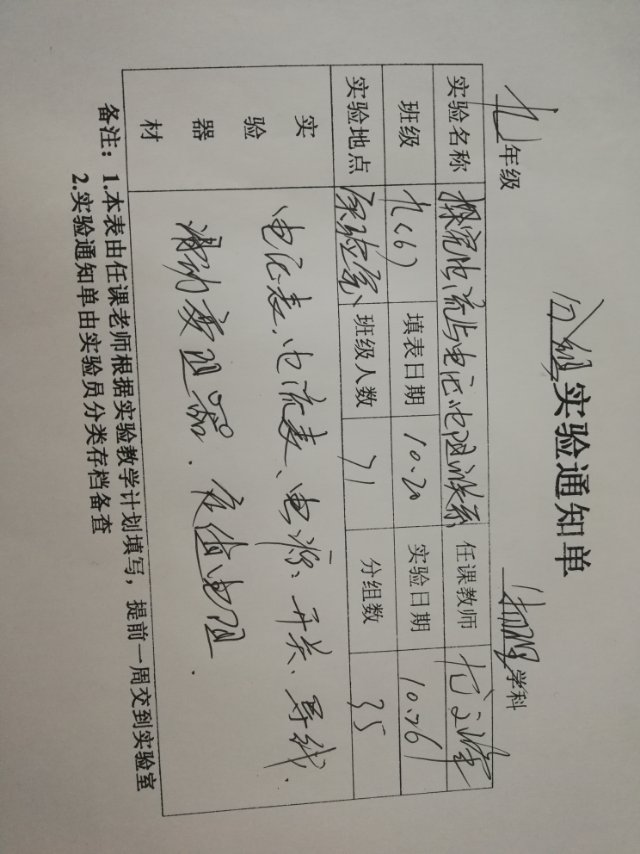 分组实验通知单
九年级 物理学科
实验名称 探究电流与电压电阻关系 任课教师
班级 九(6) 填表日期 10.20 实验日期 10.26
实验地点 实验室 班级人数 71 分组数 35
实验器材 电压表、电流表、电源、开关、导线、
滑动变阻器、定值电阻.
备注:1.本表由任课老师根据实验教学计划填写,提前一周交到实验室
2.实验通知单由实验员分类存档备查